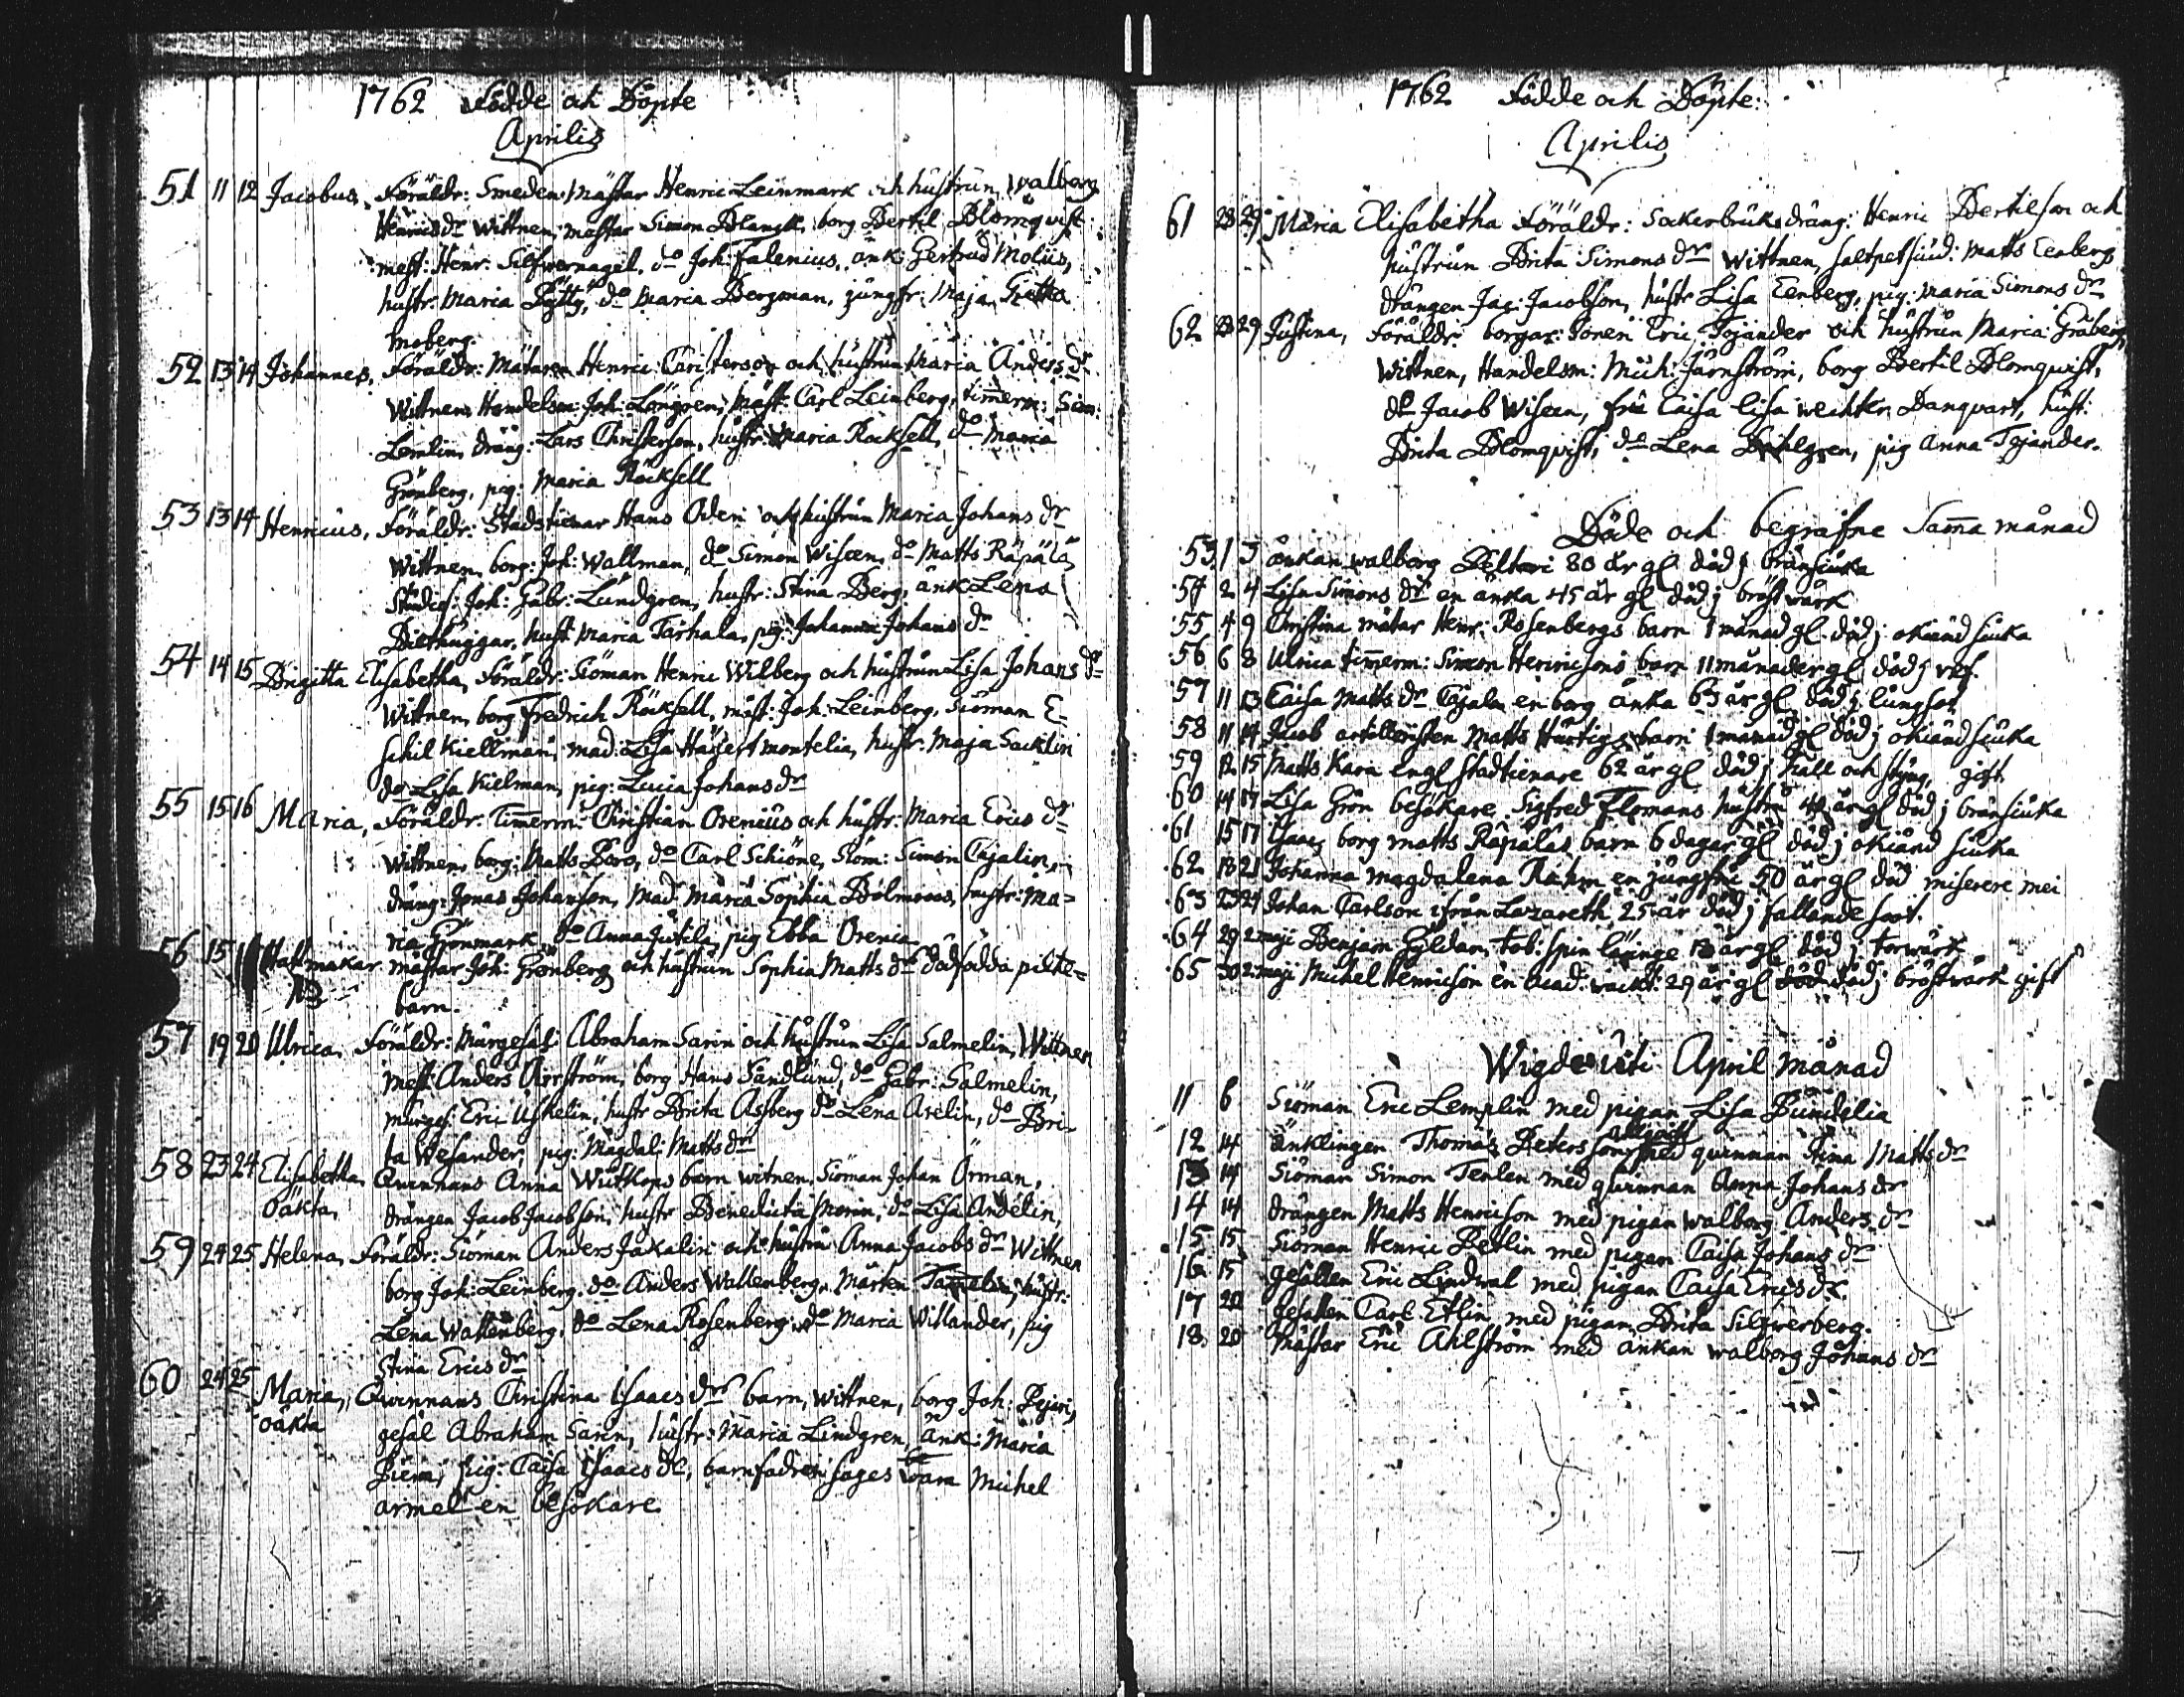 1762 Födde och Döpte
Aprilis
51 11 12 Jacobus, Föräldr: Smeden Mästar Henric Leinmark och hustrun Walborg
Henricsdr Wittnen, mästar Simon Blangk, borg Bertil Blomqvist
mest: Henr: Silfwernagel, do Joh: Falenius, änk: Gertrud Molüs,
hustr: Maria Pytty, do Maria Bergman, jungfr: Maja Greta
Moberg.
52 13 14 Johannes, Föräldr: Mätaren Henric Caristerson och hustrun Maria Anders dr
Wittnen Handelsm: Joh: Löngren, Mäst: Carl Leinberg, timerm: Sim:
Lemlin, dräng: Lars Christerson, hustr: Maria Röcksell, do Maria
Grönberg, pig: Maria Röcksell
53 13 14 Henricus, Föräldr: Stadstienar Hans Oden och hustrun Maria Johans dr
Wittnen, borg: Joh: Wallman, do Simon Wiseen, do Matts Räpälä,
Studios: Joh: Gabr: Lundgren, hustr: Stina Berg, änk Lena
Diethuggar, hust Maria Tarhala, pig: Johanna Johans dr
54 14 15 Brigitta Elisabetha, Föräldr: Siöman Henric Wilberg och hustrun Lisa Johans dr
Wittnen, borg Fredrich Röcksell, mäst: Joh: Leinberg, Siöman E-
schil Kiellman, mad: Lisa Häjert montelia, hustr: Maja Sacklin
do Lisa Kielman, pig: Lucia Johans dr
55 15 16 Maria, Föräldr: Timerm: Christian Orenius och hustr: Maria Erics dr
Wittnen, borg: Matts Borg, do Carl Schiöne, Siöm: Simon Tajalin,
dräng: Jonas Johanson, Mad: Maria Sophia Bolmroos, hustr: Ma=
ria Grönmark, do Anna Jutila, pig Ebba Orenia
56 15 Hattmakar mästar Joh: Grönberg och hustrun Sophia Matts dr dödfödda pilte=
NB barn.
57 19 20 Ulrica, Föräldr: Murgesäl: Abraham Sarin och hustrun Lisa Salmelin, Wittnen
mest: Anders Agrström, borg Hans Sandlund, do Gabr: Salmelin,
murges: Eric Uskelin, hustr Brita Assberg do Lena Arelin, do Bri-
ta Wesander, pig: Magdal: Matts dr
58 23 24 Elisabetha, Qvinnans Anna Wuthops barn witnen Siöman Johan Örman,
Oäkta, drängen Jacob Jacobson, hustr Benedicta Morin, do Lisa Andelin,
59 24 25 Helena, Föräldr: Siöman Anders Jakalin och hustru Anna Jacobs dr Wittnen
borg Joh: Leinberg, do Anders Wallenberg, Mårten Tammelin, hustr:
Lena Wallenberg, do Lena Rosenberg, do Maria Willander, pig
Stina Erics dr
60 24 25 Maria, Qwinnans Christina Isaacs dr barn, wittnen, borg Joh: Pejari,
oäkta gesäl Abraham Sarin, hustr: Maria Lindgren, änk: Maria
pig: Caisa Isaacs dr, barnfadren sages wara Michel
Armel en besökare
1762 Födde och Döpte:
Aprilis
61 28 29 Maria Elisabetha Föräldr: Sockerbruks dräng: Henric Bertilson och
hustrun Brita Simons dr Wittnen, saltpetsiud: Matts Eenberg
drängen Jac: Jacobson, hustr Lisa Eenberg, pig: Maria Simons dr
62 28 29 Justina, Föräldr: borgar: Sonen Eric Tojander och hustrun Maria Gråberg
Wittnen, Handelsm: Mich: Järnström, borg Bertil Blomqvist,
do Jacob Wiseen, fru Caisa Lisa Wechter, Danqvart, hust:
Brita Blomqvist, do Lena Dahlgren, pig Anna Tojander.
Döde och begrafne Sama månad
53 1 3 änkan walborg Peltari 80 år gl död j bränsiuka
54 2 4 Lisa Simons dr en änka 45 år gl död j bröstwärk
55 4 9 Christina mätar Henr: Rosenbergs barn 1 månad gl död j okiänd siuka
56 6 8 Ulrica timerm: Simon Henricsons barn 11 månader gl död j rhf.
57 11 13 Caisa Matts dr Tajala en borg änka 63 år gl död j lungsot
58 11 14 Jacob artilleristen Matts Hurtigs barn 1 månad gl död j okiänd siuka
59 12 15 Matts Kara en gl Stadtienare 62 år gl död j håll och styng, gift
60 14 17 Lisa Grön besökare Sigfred Flomans hustru 42 år gl död j bränsiuka
61 15 17 Isaac borg matts Räpäläs barn 6 dagar gl död j okiänd siuka
62 18 21 Johanna Magdalena Rahm en jungfru 50 år gl död miserere mei
63 23 24 Johan Carlson ifrån Lazareth 25 år död j fallande soot.
64 29 2 maji Benjam Gyldan, tob: spin läringe 13 år gl död j torwärk
65 30 2 maji Michel Henricson en Acad: wackt: 29 år gl död j bröstwärk gift
Wigde uti April månad
11 6 Siöman Eric Lemplin med pigan Lisa Bundelia
12 14 änklingen Thomas Peterson med qwinnan Stina Matts dr
13 14 Siöman Simon Tenlen med qwinnan Anna Johans dr
14 14 drängen Matts Henricson med pigan Walborg Anders dr
15 15 Siöman Henric Bellin med pigan Caisa Johans dr
16 15 gesällen Eric Lindwal med pigan Caisa Erics dr.
17 20 gesällen Carl Etlin med pigan Brita Silfwerberg.
18 20 Mästar Eric Ahlström med änkan Walborg Johans dr